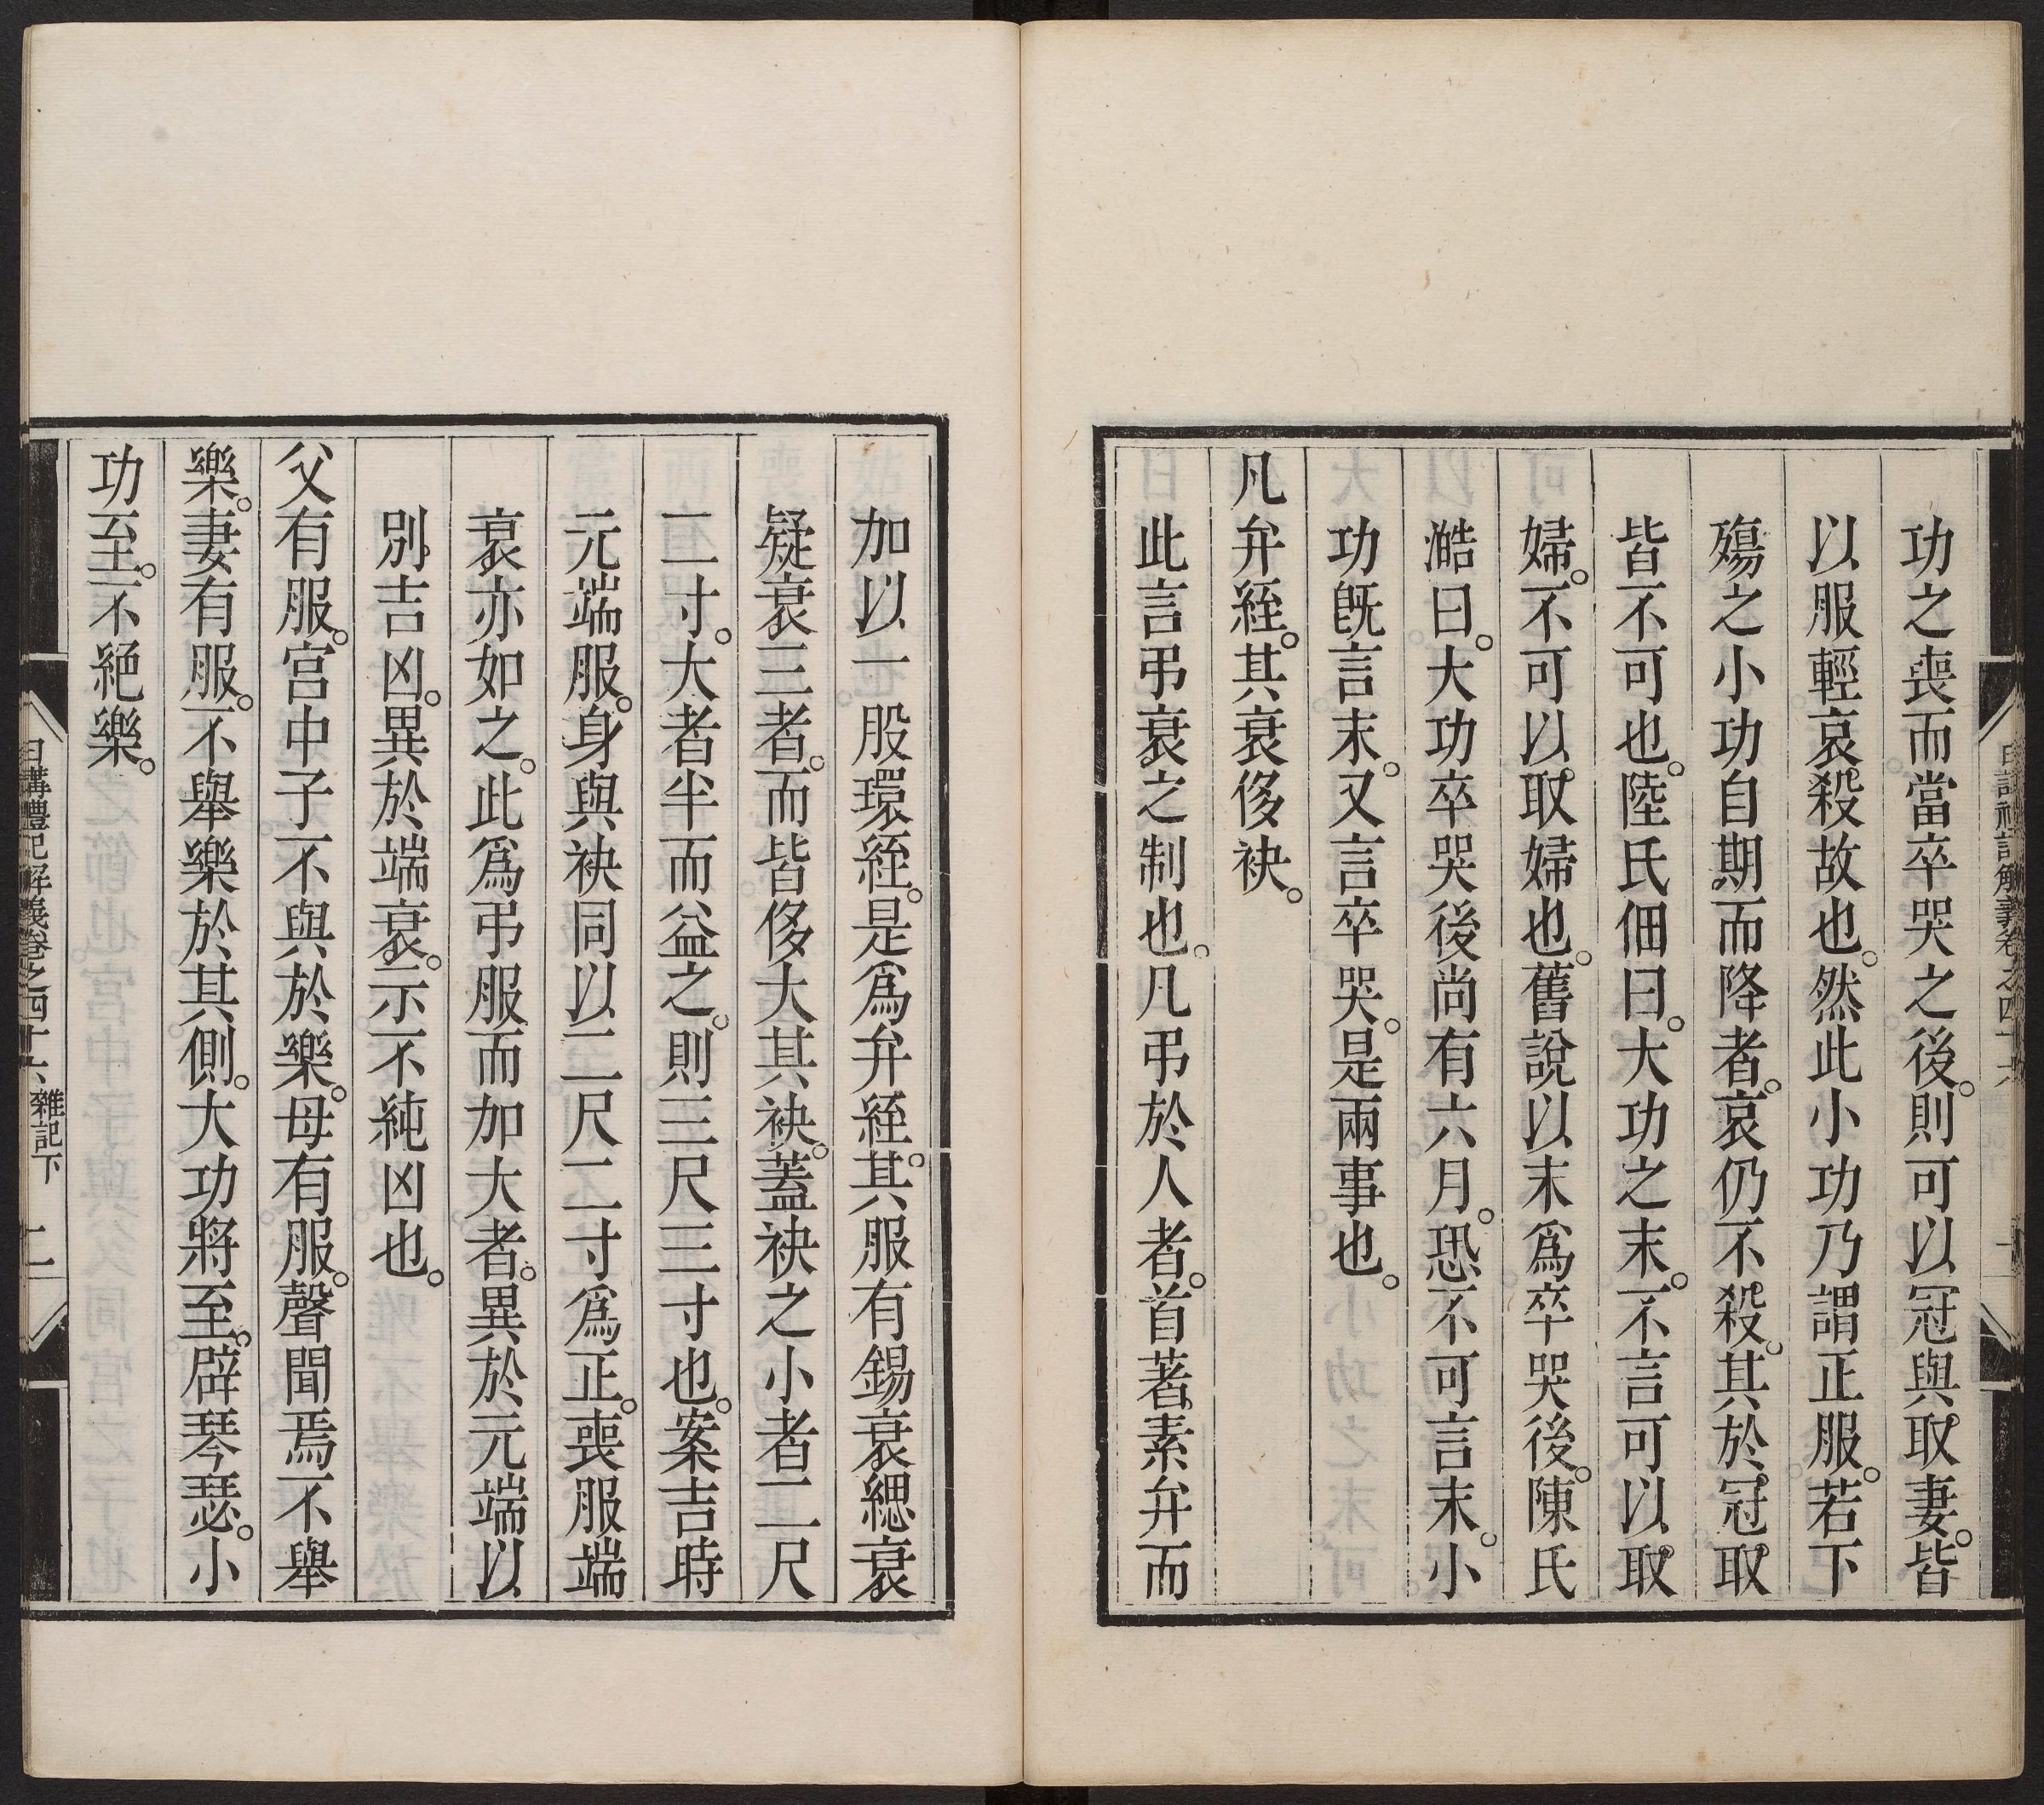 功之喪而當卒哭之後。則可以冠與取妻。皆
以服輕哀殺故也。然此小功乃謂正服。若下
殤之小功自期而降者。哀仍不殺。其於冠取
皆不可也。陸氏佃曰。大功之末。不言可以取
婦。不可以取婦也。舊說以末為卒哭後。陳氏
澔曰。大功卒哭後尚有六月。恐不可言末。小
功旣言末。又言卒哭。是兩事也。
凡弁絰。其衰侈袂。
此言弔衰之制也。凡弔於人者。首著素弁而
加以一股環絰。是爲弁絰。其服有錫衰緦衰
疑衰三者。而皆侈大其袂。蓋袂之小者二尺
二寸。大者半而益之。則三尺三寸也。案吉時
元端服。身與袂同以二尺二寸爲正。喪服端
衰亦如之。此爲弔服而加大者。異於元端以
別吉凶。異於端衰。示不純凶也。
父有服。宮中子不與於樂。母有服。聲聞焉不舉
樂。妻有服。不舉樂於其側。大功將至。辟琴瑟。小
功至。不絕樂。
日講禮記解義卷之四十六 雜記下 二